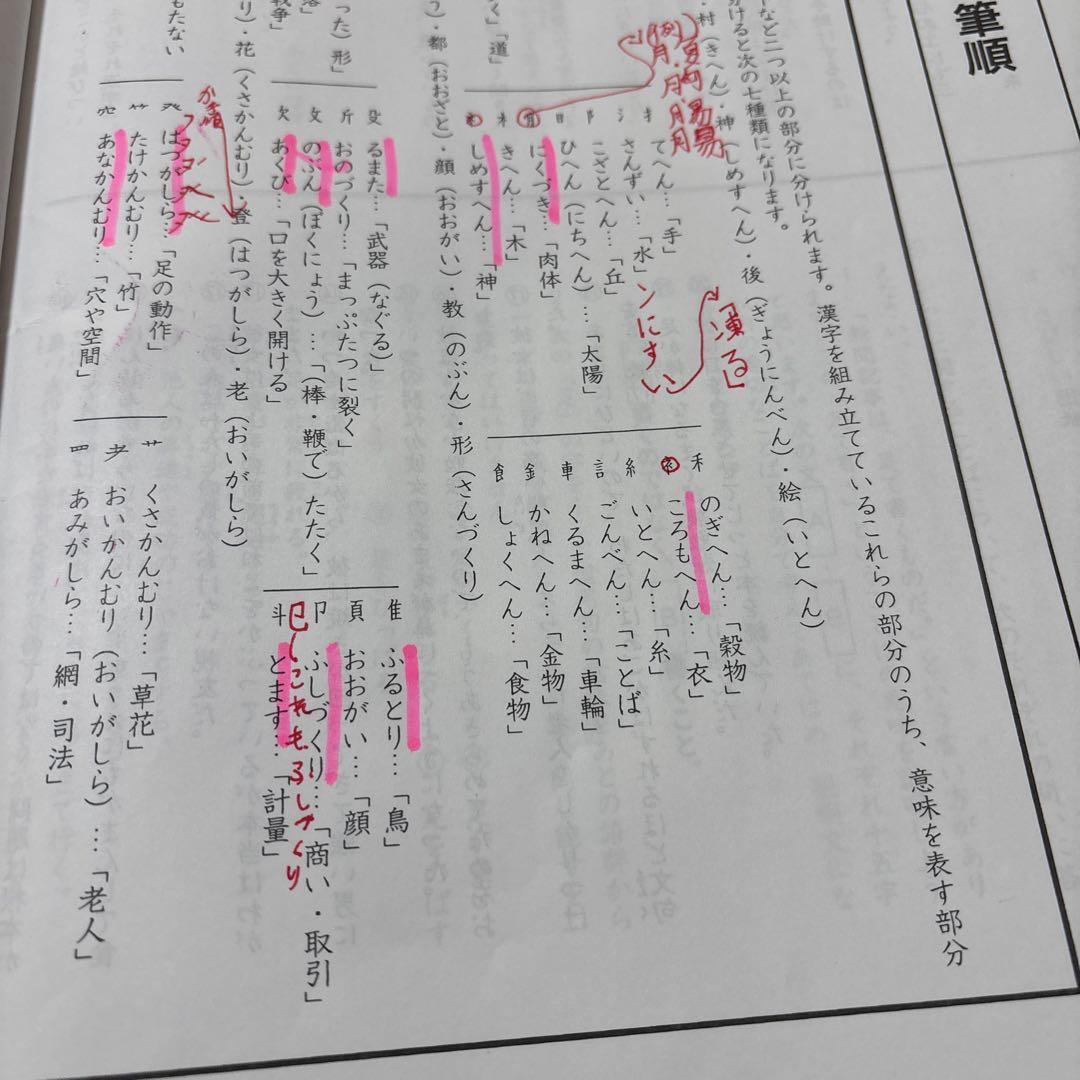 筆順
など二つ以上の部分に分けられます。漢字を組み立てているこれらの部分のうち、意味を表す部分
分けると次の七種類になります。
村(きへん)・神(しめすへん)・後(ぎょうにんべん)・絵(いとへん)
扌 てへん…「手」
氵 さんずい…「水」
ンにすい
冫→「凍る」
阝 こざとへん…「丘」
日 ひへん(にちへん)…「太陽」
月 にくづき…「肉体」
木 きへん…「木」
ネ しめすへん…「神」
禾 のぎへん…「穀物」
衤 ころもへん…「衣」
糸 いとへん…「糸」
言 ごんべん…「ことば」
車 くるまへん…「車輪」
金 かねへん…「金物」
飠 しょくへん…「食物」
く」「道」
・都(おおざと)・顔(おおがい)・教(のぶん)・形(さんづくり)
った)形」
戦争」
殳 るまた…「武器(なぐる)」
斤 おのづくり…「まっぷたつに裂く」
攵 のぶん(ぼくにょう)…「(棒・鞭で)たたく」
欠 あくび…「口を大きく開ける」
隹 ふるとり…「鳥」
頁 おおがい…「顔」
卩 ふしづくり…「商い・取引」
㔾 これもふしづくり
斗 とます…「計量」
)・花(くさかんむり)・登(はつがしら)・老(おいがしら)
もたない
癶 はつがしら…「足の動作」
⺮ たけかんむり…「竹」
穴 あなかんむり…「穴や空間」
艹 くさかんむり…「草花」
耂 おいかんむり(おいがしら)…「老人」
罒 あみがしら…「網・司法」